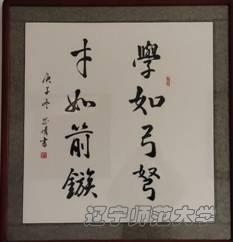 學如弓弩
才如前鏃
庚子冬
書
辽宁师范大学